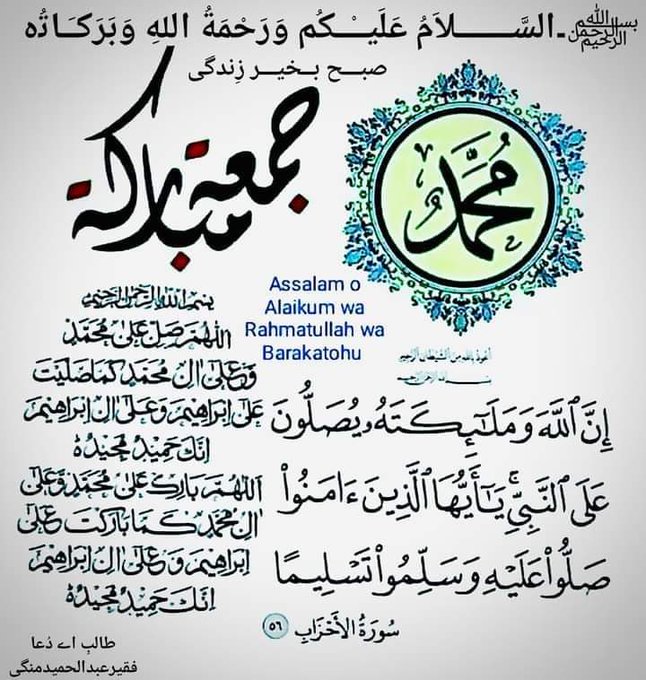 بسم الله الرحمن الرحيم۔السَّلَامُ عَلَيْكُم وَرَحْمَةُ اللهِ وَبَرَكَاتُه
صبح بخیر زِندگی
جمعة مباركة
مُحَمَّدٌ
Assalam o
Alaikum wa
Rahmatullah wa
Barakatohu
بسم الله الرحمن الرحيم
اللهم صل على محمد
وعلى ال محمد كما صليت
على ابراهيم وعلى ال ابراهيم
انك حميد مجيد
اللهم بارك على محمد وعلى
ال محمد كما باركت على
ابراهيم وعلى ال ابراهيم
انك حميد مجيد
اعوذ بالله من الشيطان الرجيم
بسم الله الرحمن الرحيم
إِنَّ ٱللَّهَ وَمَلَـٰٓئِكَتَهُۥ يُصَلُّونَ
عَلَى ٱلنَّبِيِّ ۚ يَـٰٓأَيُّهَا ٱلَّذِينَ ءَامَنُوا۟
صَلُّوا۟ عَلَيْهِ وَسَلِّمُوا۟ تَسْلِيمًا
سُورَةُ الأَحْزَابِ ٥٦
طالبِ اے دُعا
فقیرعبدالحمیدمنگی